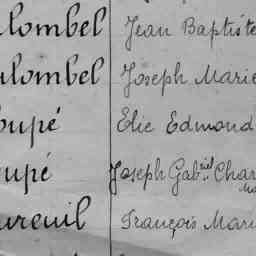 ulombel Jean Baptiste
ulombel Joseph Marie
oupé Elie Edmond
oupé Joseph Gabriel Char
ureuil François Mari